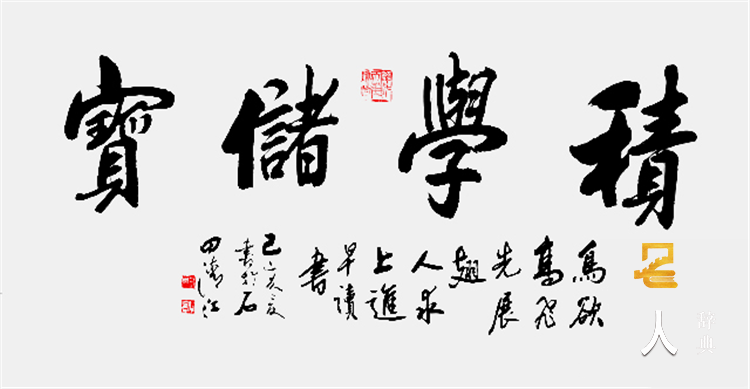 積學儲寶
鳥欲
高飛
先展
翅
人求
上進
早讀
書
己亥夏
書於石
田濤江
名人
辞典